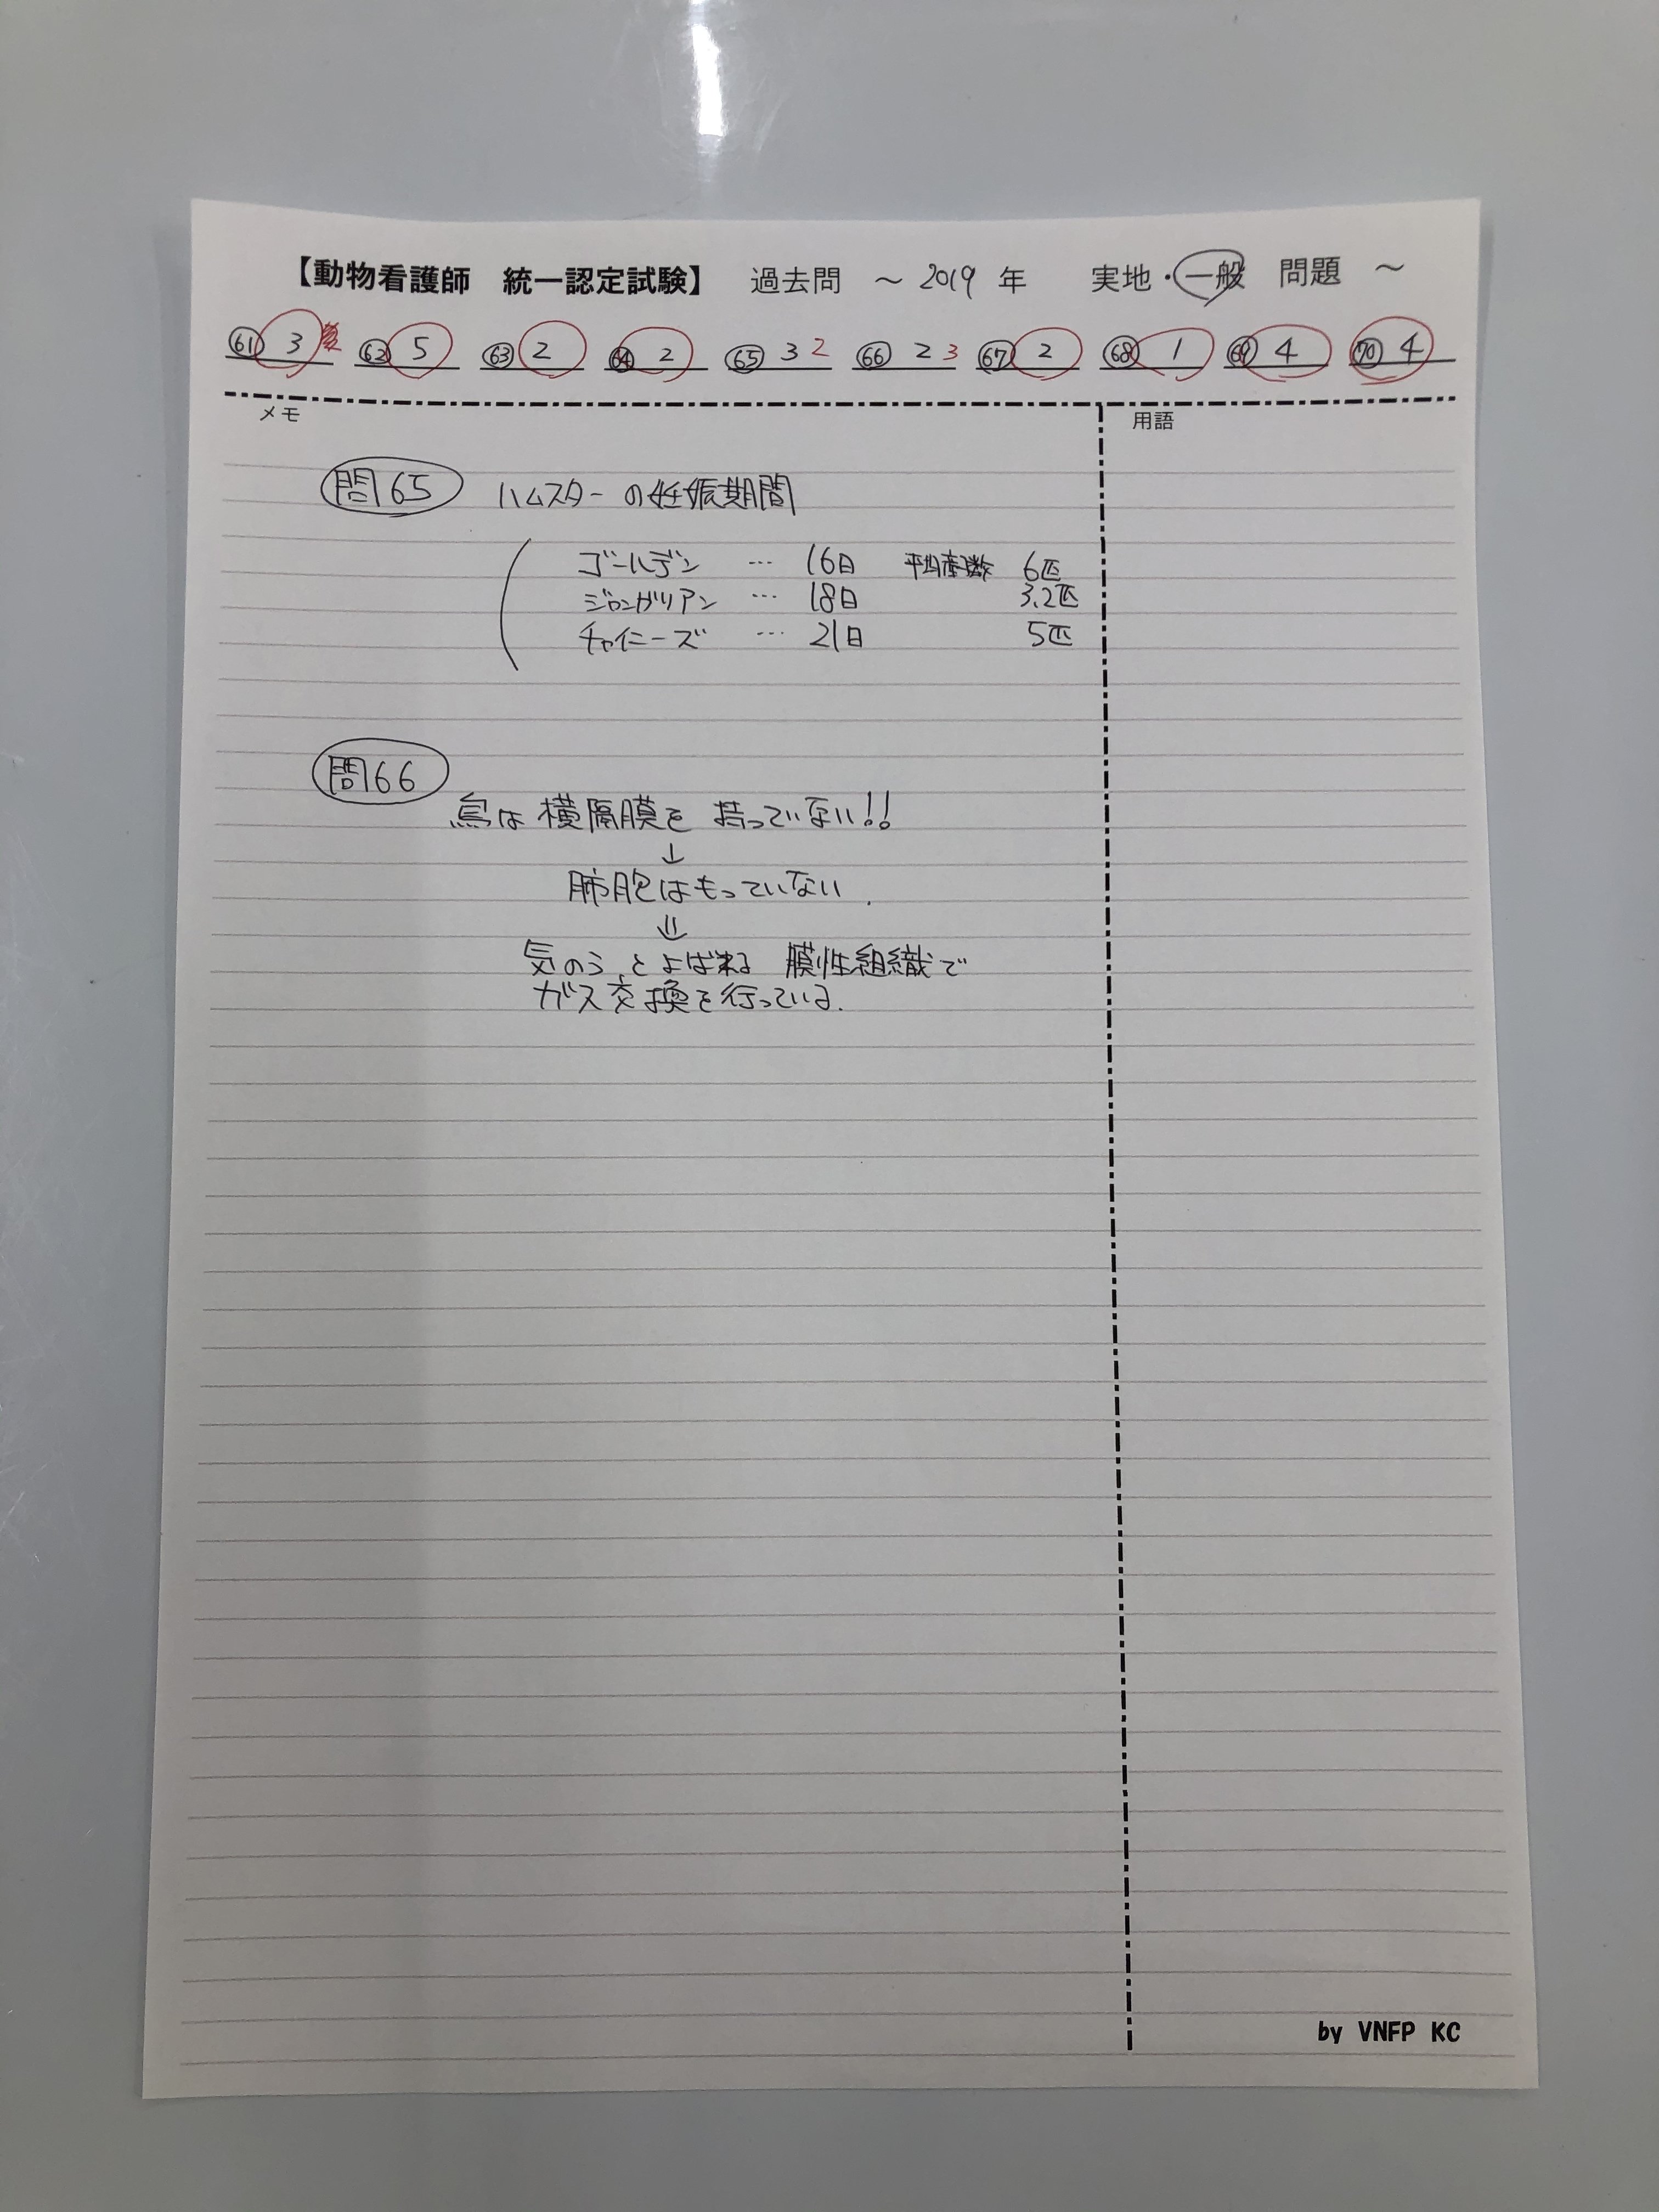 【動物看護師 統一認定試験】 過去問 ～ 2019 年 実地・一般 問題 ～
61 3 62 5 63 2 64 2 65 3 2 66 2 3 67 2 68 1 69 4 70 4
メモ 用語
問65 ハムスターの妊娠期間
ゴールデン … 16日 平均産子数 6匹
ジャンガリアン … 18日 3.2匹
チャイニーズ … 21日 5匹
問66
鳥は横隔膜を持っていない!!
↓
肺胞はもっていない.
⇓
気のうとよばれる膜性組織で
ガス交換を行っている.
by VNFP KC